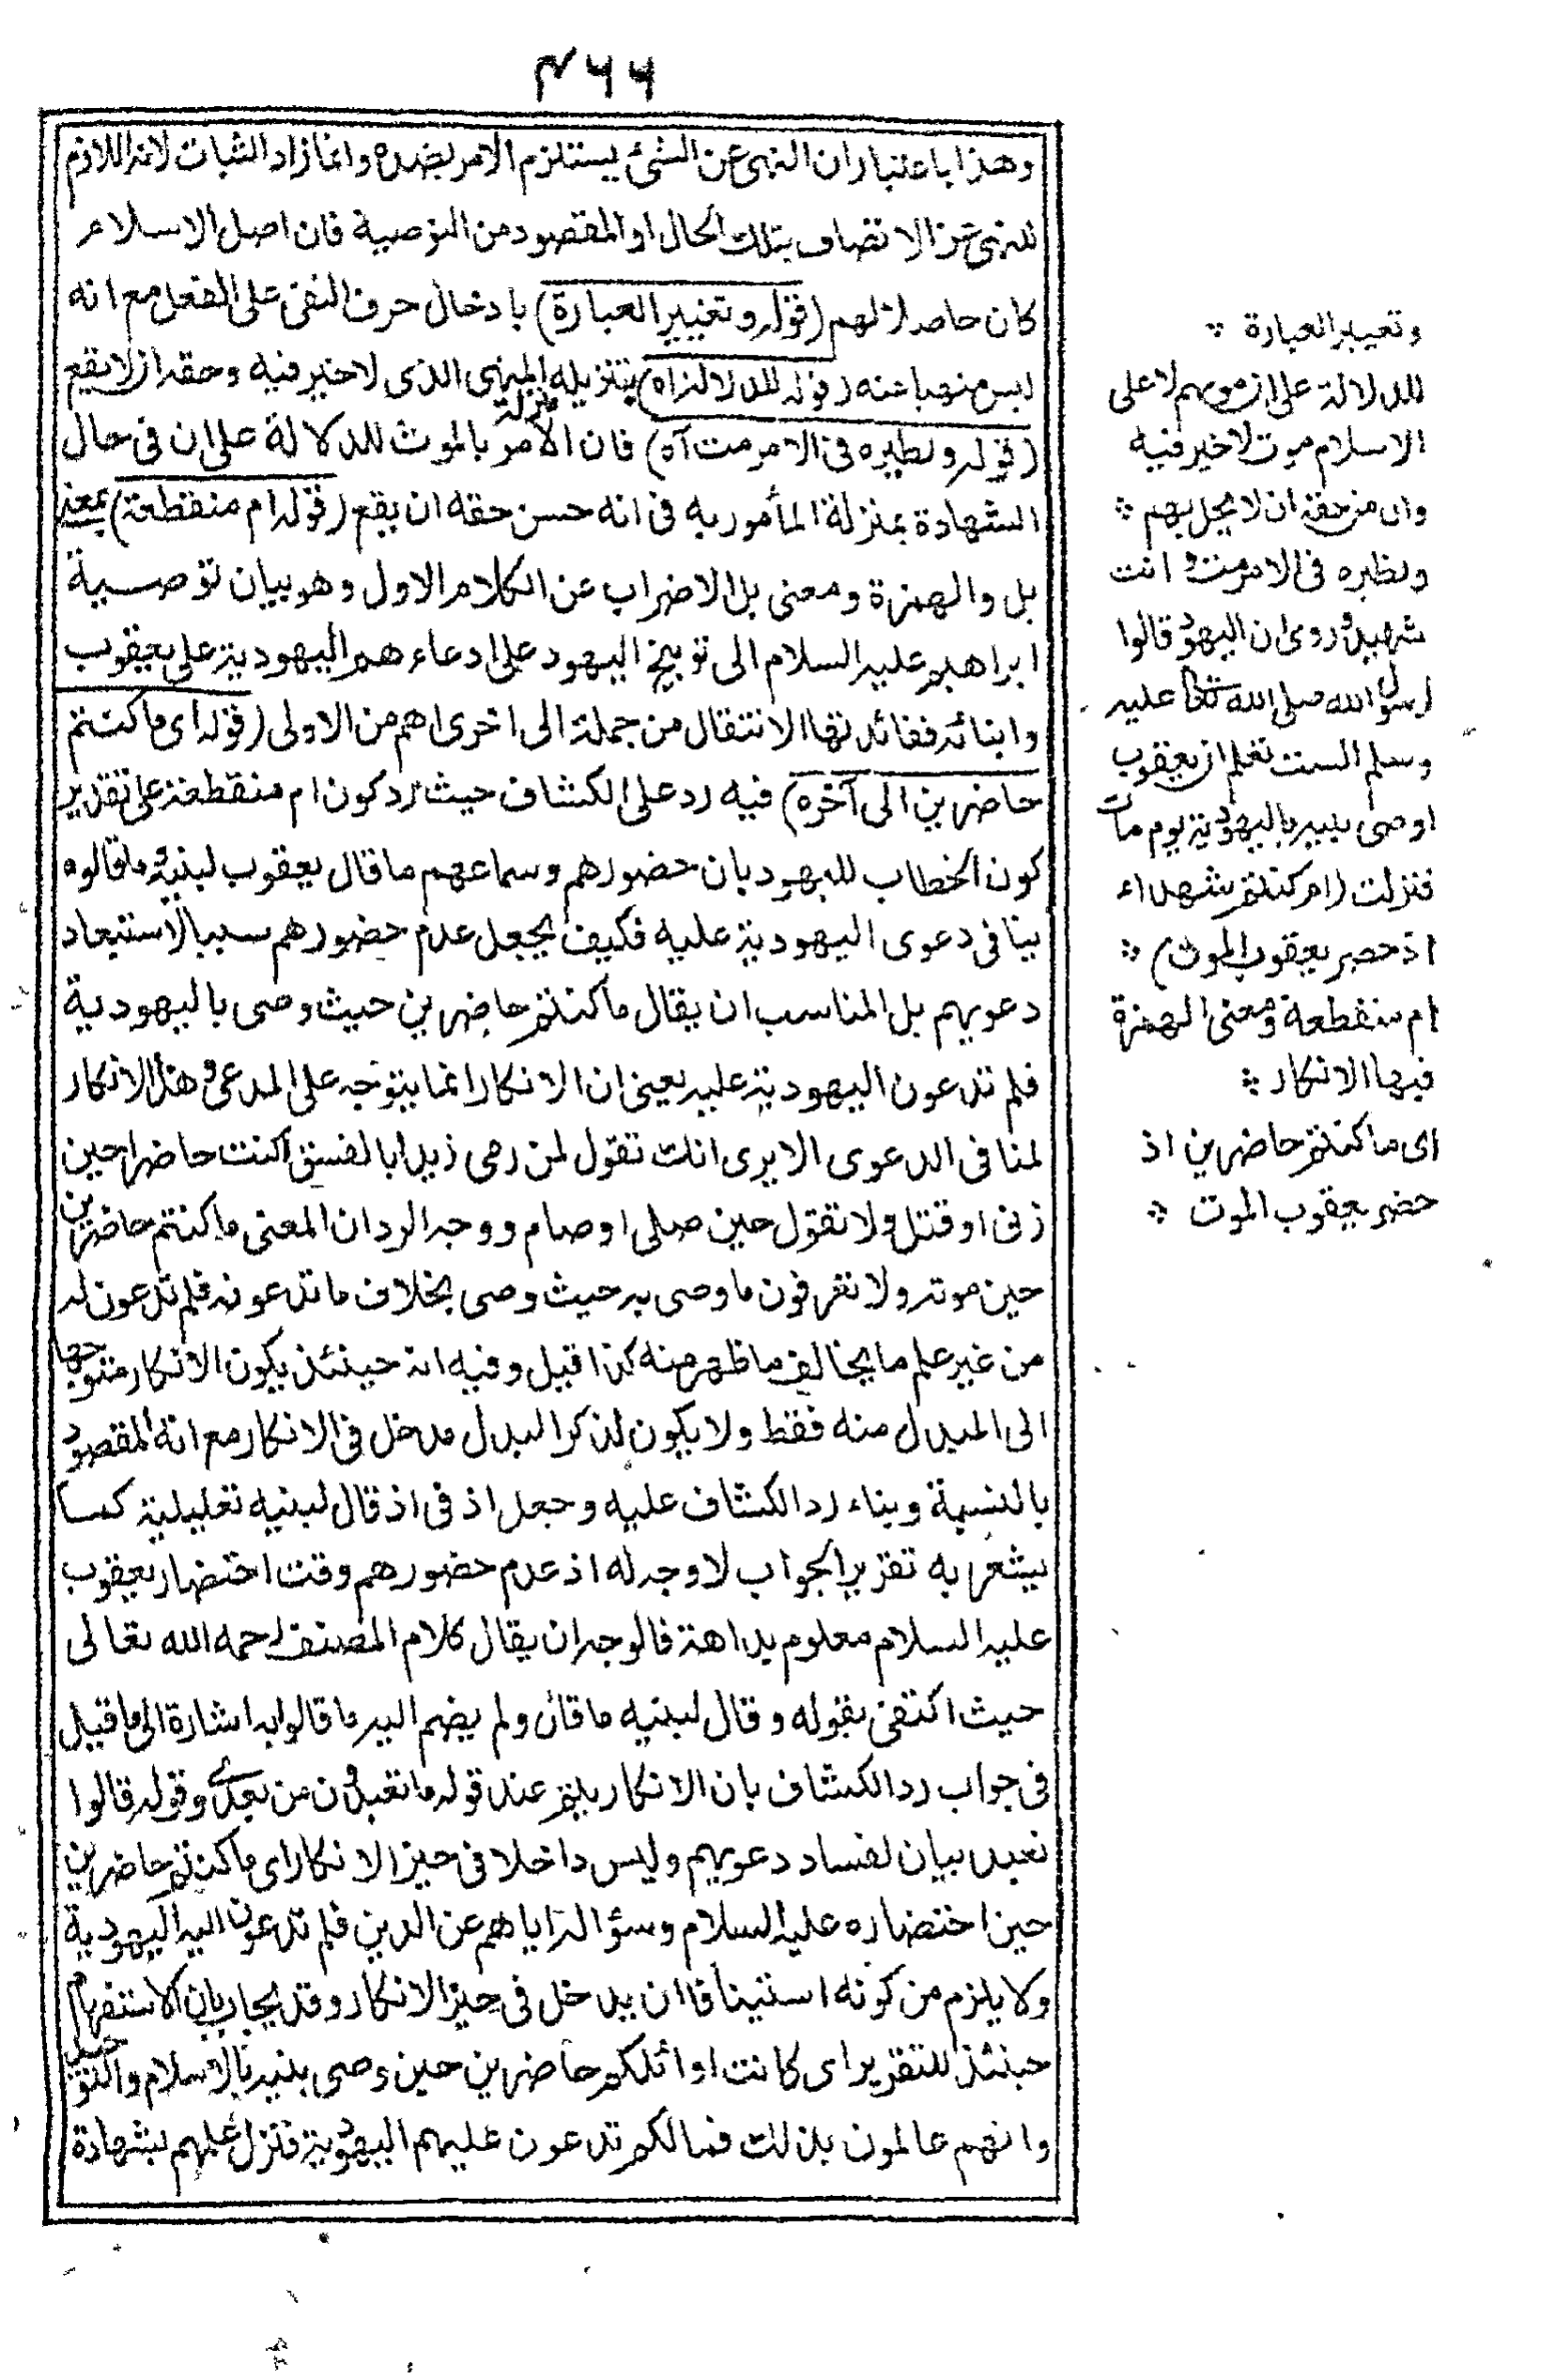 ٤٦٦
وهذا باعتبار ان النهى عن الشئ يستلزم الامر بضده وانما زاد الثبات لانه اللازم
للنهى عن الاتصاف بتلك الحال او المقصود من التوصية فان اصل الاسلام
كان حاصلا لهم (قوله وتغيير العبارة) بادخال حرف النفى على الفعل مع انه
ليس منهيا عنه (قوله للدلالة اه) بتنزيله منزلة المنهى الذى لاخير فيه وحقه ان لا يقع
(قوله ونظيره فى الامر مت آه) فان الامر بالموت للدلالة على ان فى حال
الشهادة بمنزلة المأمور به فى انه حسن حقه ان يقع (قوله ام منقطعة) بمعنى
بل والهمزة ومعنى بل الاضراب عن الكلام الاول وهو بيان توصية
ابراهيم عليه السلام الى توبيخ اليهود على ادعاءهم اليهودية على يعقوب
وابنائه ففائدتها الانتقال من جملة الى اخرى اهم من الاولى (قوله اى ما كنتم
حاضرين الى آخره) فيه رد على الكشاف حيث رد كون ام منقطعة على تقدير
كون الخطاب لليهود بان حضورهم وسماعهم ما قال يعقوب لبنيه وما قالوه
ينافى دعوى اليهودية عليه فكيف يجعل عدم حضورهم سببا لاستبعاد
دعويهم بل المناسب ان يقال ما كنتم حاضرين حيث وصى باليهودية
فلم تدعون اليهودية عليه يعنى ان الانكار انما يتوجه على المدعى وهذا الانكار
لمنافى الدعوى الا يرى انك تقول لمن رمى زيدا بالفسق اكنت حاضرا حين
زنى او قتل ولا تقول حين صلى او صام ووجه الرد ان المعنى ما كنتم حاضرين
حين موته ولا تعرفون ما وصى به حيث وصى بخلاف ما تدعونه فلم تدعون له
من غير علم ما يخالف ما ظهر منه كذا قيل وفيه انه حينئذ يكون الانكار متوجها
الى المبدل منه فقط ولا يكون لذكر البدل مدخل فى الانكار مع انه المقصود
بالنسبة وبناء رد الكشاف عليه وجعل اذ فى اذ قال لبنيه تعليلية كما
يشعر به تقرير الجواب لا وجه له اذ عدم حضورهم وقت احتضار يعقوب
عليه السلام معلوم بداهة فالوجه ان يقال كلام المصنف رحمه الله تعالى
حيث اكتفى بقوله وقال لبنيه ما قال ولم يضم اليه ما قالوا به اشارة الى ما قيل
فى جواب رد الكشاف بان الانكار يتم عند قوله ما تعبدون من بعدى وقوله قالوا
نعبد بيان لفساد دعويهم وليس داخلا فى حيز الانكار اى ما كنتم حاضرين
حين احتضاره عليه السلام وسؤاله اياهم عن الدين فلم تدعون اليه اليهودية
ولا يلزم من كونه استينافا ان يدخل فى حيز الانكار وقد يجاب بان الاستفهام
حينئذ للتقرير اى كانت اوائلكم حاضرين حين وصى بنيه بالاسلام والتوحيد
وانهم عالمون بذلك فمالكم تدعون عليهم اليهودية فنزل علمهم بشهادة
وتغيير العبارة *
للدلالة على ان موتهم لا على
الاسلام موت لا خير فيه
وان من حقه ان لا يحل بهم *
ونظيره فى الامر مت وانت
شهيد وروى ان اليهود قالوا
لرسول الله صلى الله تعالى عليه
وسلم الست تعلم ان يعقوب
اوصى بنيه باليهودية يوم مات
فنزلت (ام كنتم شهداء
اذ حضر يعقوب الموت) *
ام منقطعة ومعنى الهمزة
فيها الانكار *
اى ما كنتم حاضرين اذ
حضر يعقوب الموت *